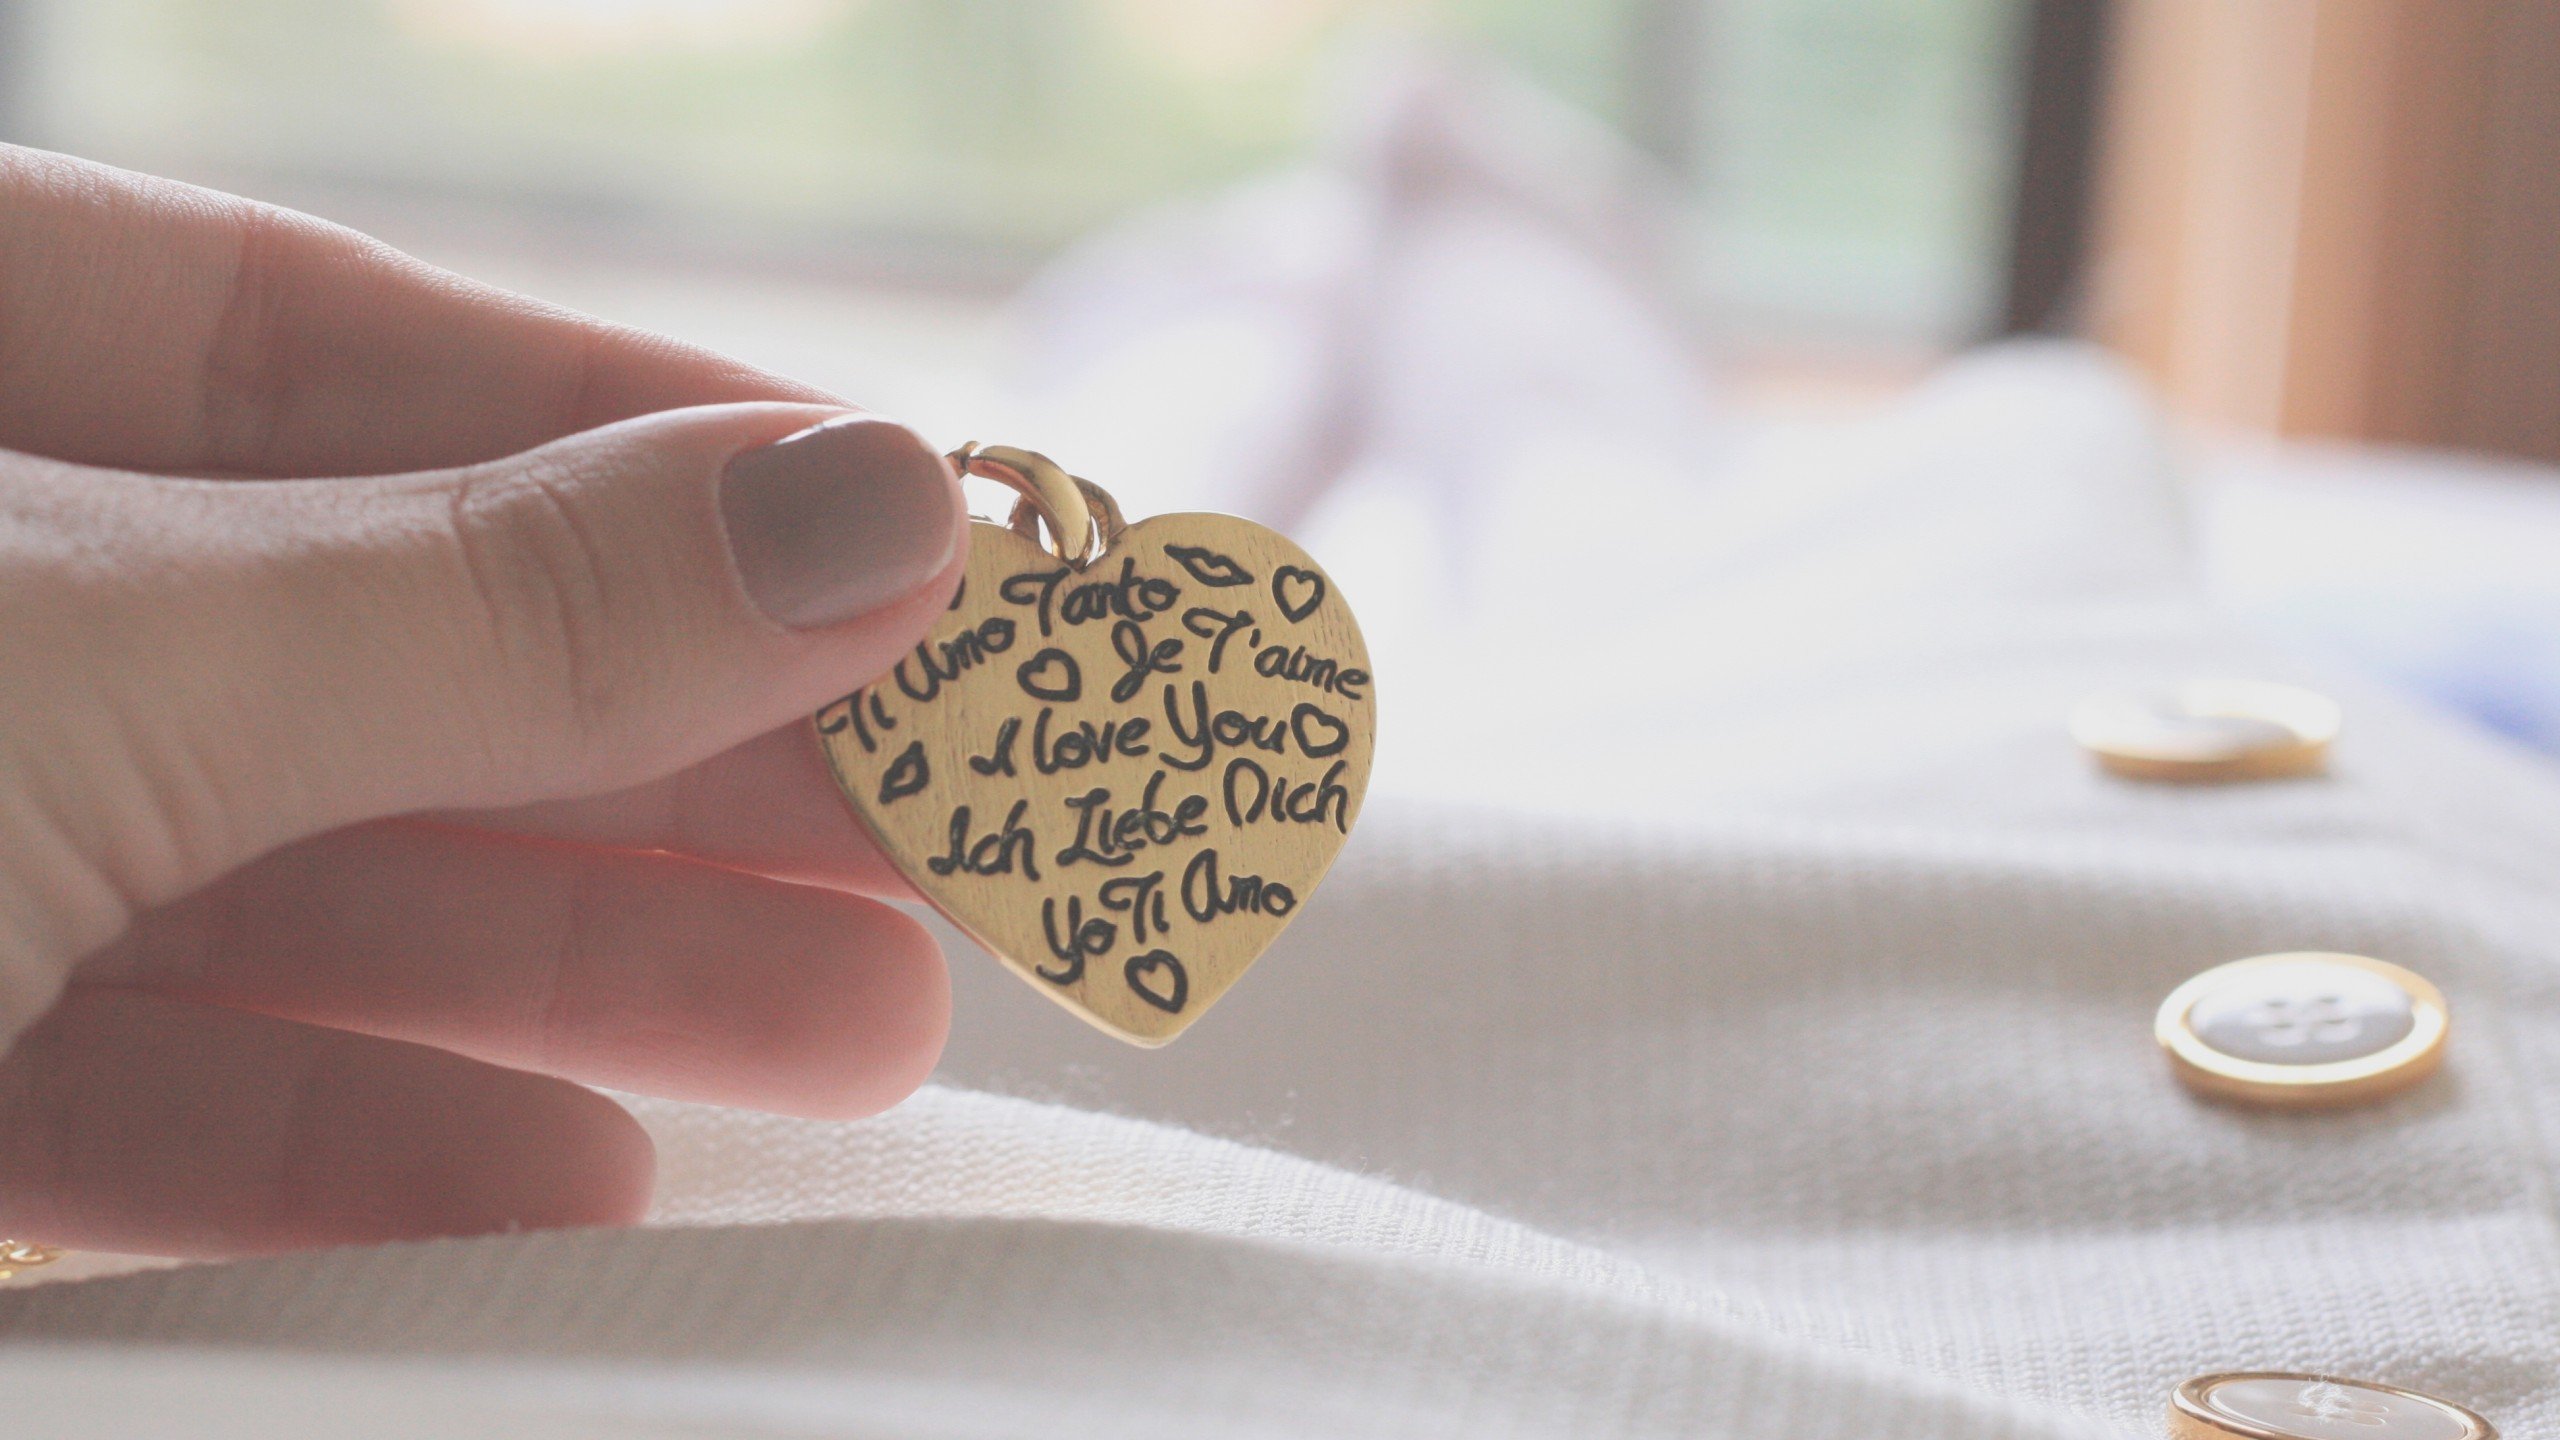 Ti Amo Tanto
Je T'aime
I love You
Ich Liebe Dich
Yo Ti Amo